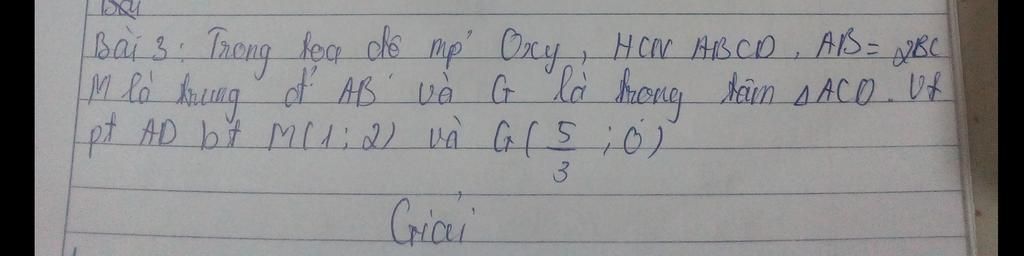 Bài
Bài 3: Trong tọa độ mp Oxy, HCN ABCD. AB = 2BC
M là trung đ' AB và G là trọng tâm ΔACD. Vt
pt AD bt M(1; 2) và G(5/3; 0)
Giải